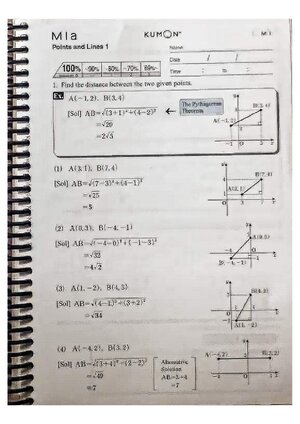 M1a
KUMON
M 1
Points and Lines 1
Name
Date / /
100% ~90% ~80% ~70% 69%~
Time : to :
1. Find the distance between the two given points.
Ex.
A(−1, 2), B(3, 4)
[Sol] AB=√(3+1)²+(4−2)²
The Pythagorean
Theorem
=√20
=2√5
B(3, 4)
A(−1, 2)
(1) A(3, 1), B(7, 4)
[Sol] AB=√(7−3)²+(4−1)²
=√25
=5
B(7, 4)
A(3, 1)
(2) A(0, 3), B(−4, −1)
[Sol] AB=√(−4−0)²+(−1−3)²
=√32
=4√2
A(0, 3)
B(−4, −1)
(3) A(1, −2), B(4, 3)
[Sol] AB=√(4−1)²+(3+2)²
=√34
B(4, 3)
A(1, −2)
(4) A(−4, 2), B(3, 2)
[Sol] AB=√(3+4)²−(2−2)²
=√49
=7
Alternative
Solution
AB=3+4
=7
A(−4, 2)
B(3, 2)